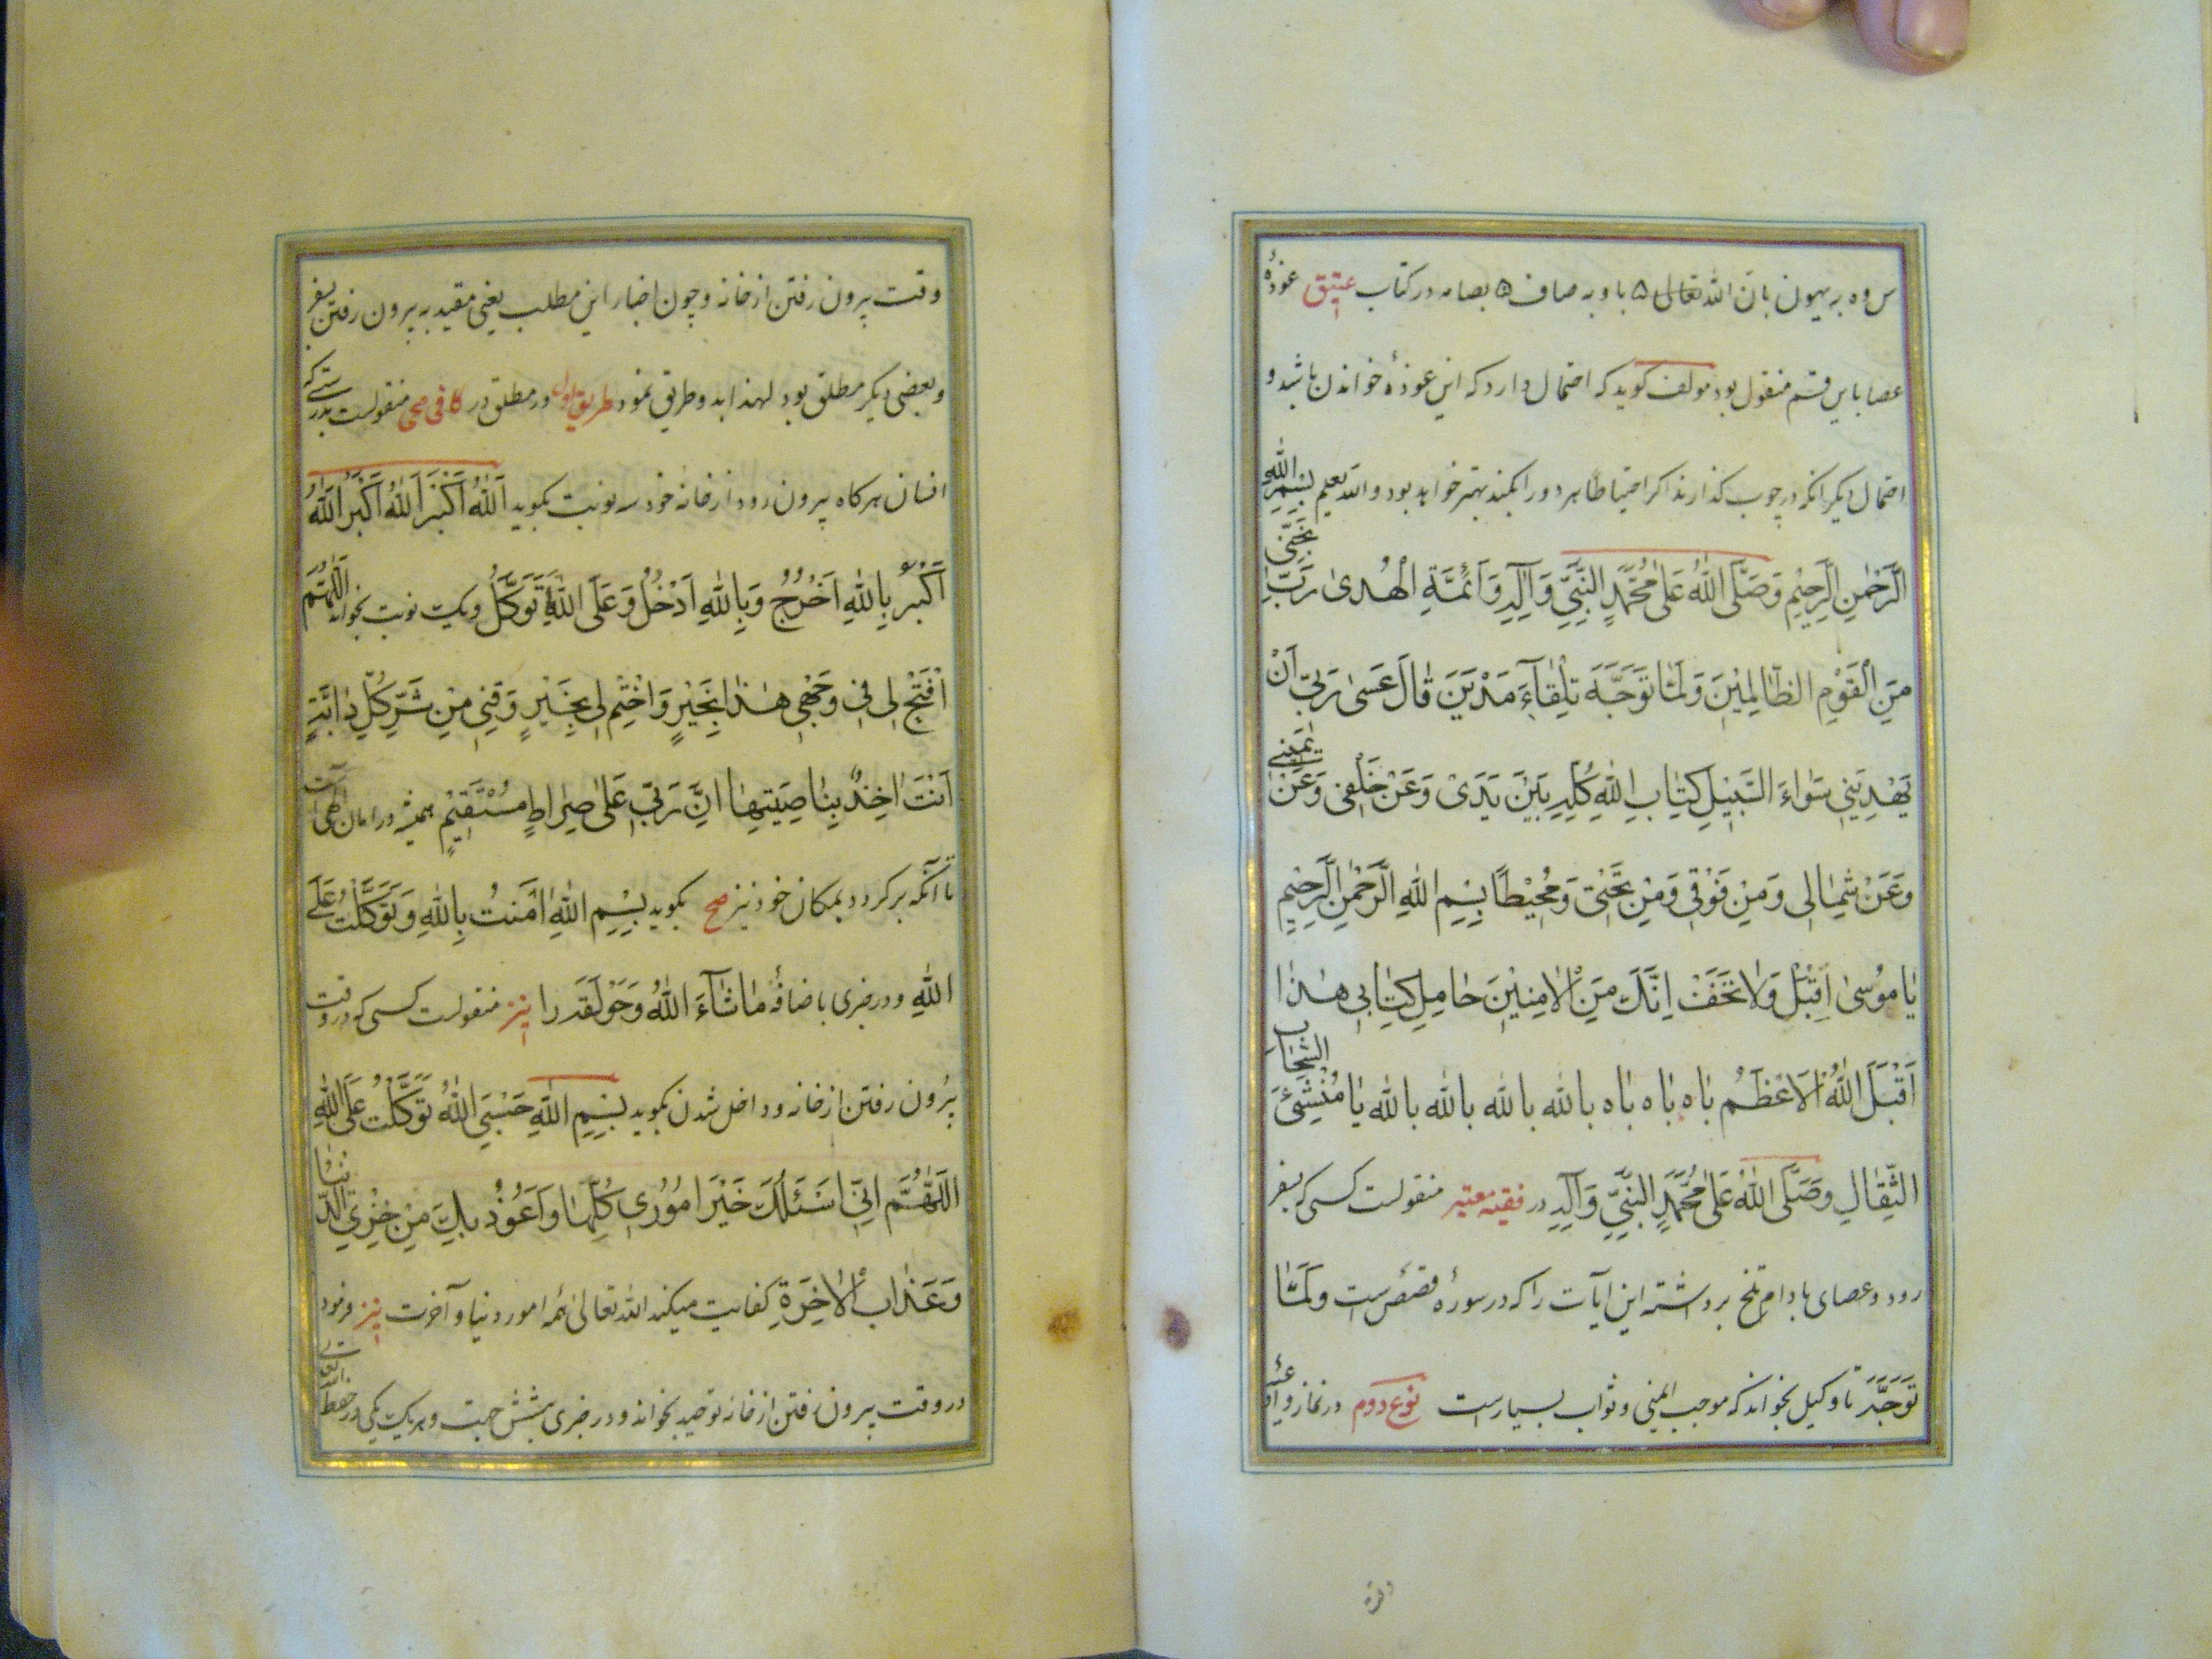 س وه بر یهون بان الله تعالی ۵ با وبه صاف ۵ بصامه در کتاب عتیق عوذهٔ
عصا باین قسم منقول بود مولف کوید که احتمال دارد که این عوذهٔ خواندن باشد و
احتمال دیکر انکه در چوب کذارند اکر احتیاطا هر دو را بکنند بهتر خواهد بود والله یعلم بِسْمِ اللهِ
الرَّحْمٰنِ الرَّحِیْمِ وَصَلَّی اللهُ عَلیٰ مُحَمَّدٍ النَّبِیِّ وَآلِهِ وَاَئمَّةِ الْهُدیٰ رَبِّ نَجِّنِی
مِنَ الْقَوْمِ الظّالِمِیْنَ وَلَمّا تَوَجَّهَ تِلْقاآءَ مَدْیَنَ قالَ عَسیٰ رَبّی اَنْ
یَهْدِیَنِی سَواءَ السَّبیْلِ کِتابِ اللهِ کُلِّهِ بَیْنَ یَدَیَّ وَعَنْ خَلْفی وَعَنْ یَمینی
وَعَنْ شِمالی وَمِنْ فَوْقی وَمِنْ تَحْتی وَمُحیْطاً بِسْمِ اللهِ الرَّحْمٰنِ الرَّحیْمِ
یا مُوسیٰ اَقْبِلْ وَلا تَخَفْ اِنَّکَ مِنَ الْامِنیْنَ حامِلِ کِتابی هٰذا
اَقْبَلَ اللهُ الْاَعْظَمُ باه باه باه بالله بالله بالله بالله یا مُنْشِئَ السَّحابِ
الثِّقالِ وَصَلَّی اللهُ عَلیٰ مُحَمَّدٍ النَّبِیِّ وَآلِهِ در فقیه معتبر منقولست کسی که بسفر
رود و عصای بادام تلخ برداشته این آیات را که در سورهٔ قصص است وَلَمّا
تَوَجَّهَ تا وکیل بخواند که موجب ایمنی و ثواب بسیارست نوع دوم در نماز و ادعیهٔ
وقت بیرون رفتن از خانه و چون اخبار این مطلب بعضی مقید به بیرون رفتن بسفر
و بعضی دیکر مطلق بود لهذا بدو طریق نمود طریق اول در مطلق در کافی صحی منقولست بدرستی که
انسان هرکاه بیرون رود از خانهٔ خود سه نوبت بکوید اَللهُ اَکْبَرُ اَللهُ اَکْبَرُ اَللهُ
اَکْبَرُ بِاللهِ اَخْرُجُ وَبِاللهِ اَدْخُلُ وَعَلَی اللهِ تَوَکَّلُ و یکنوبت بخواند اَللّٰهُمَّ
افْتَحْ لی فی وَجْهی هٰذا بِخَیْرٍ وَاخْتِمْ لی بِخَیْرٍ وَقِنی مِنْ شَرِّ کُلِّ دابَّةٍ
اَنْتَ اخِذٌ بِناصِیَتِها اِنَّ رَبّی عَلیٰ صِراطٍ مُسْتَقیْمٍ همیشه در امان الهی است
تا آنکه برکردد بمکان خود نیز صح بکوید بِسْمِ اللهِ امَنْتُ بِاللهِ وَتَوَکَّلْتُ عَلَی
اللهِ و در خبری باضافهٔ ماشاآءَ اللهُ وَحَوْلَقَه را نیز منقولست کسی که در وقت
بیرون رفتن از خانه و داخل شدن بکوید بِسْمِ اللهِ حَسْبِیَ اللهُ تَوَکَّلْتُ عَلَی اللهِ
اَللّٰهُمَّ اِنّی اَسْئَلُکَ خَیْرَ اُمُوْری کُلِّها وَاَعُوْذُ بِکَ مِنْ خِزْیِ الدُّنْیا
وَعَذابِ الْاخِرَةِ کفایت میکند الله تعالی همه امور دنیا و آخرت نیز فرمود
در وقت بیرون رفتن از خانه توحید بخواند و در خبری بشش جهت و هر یک یکی در حفظ الله تعالی